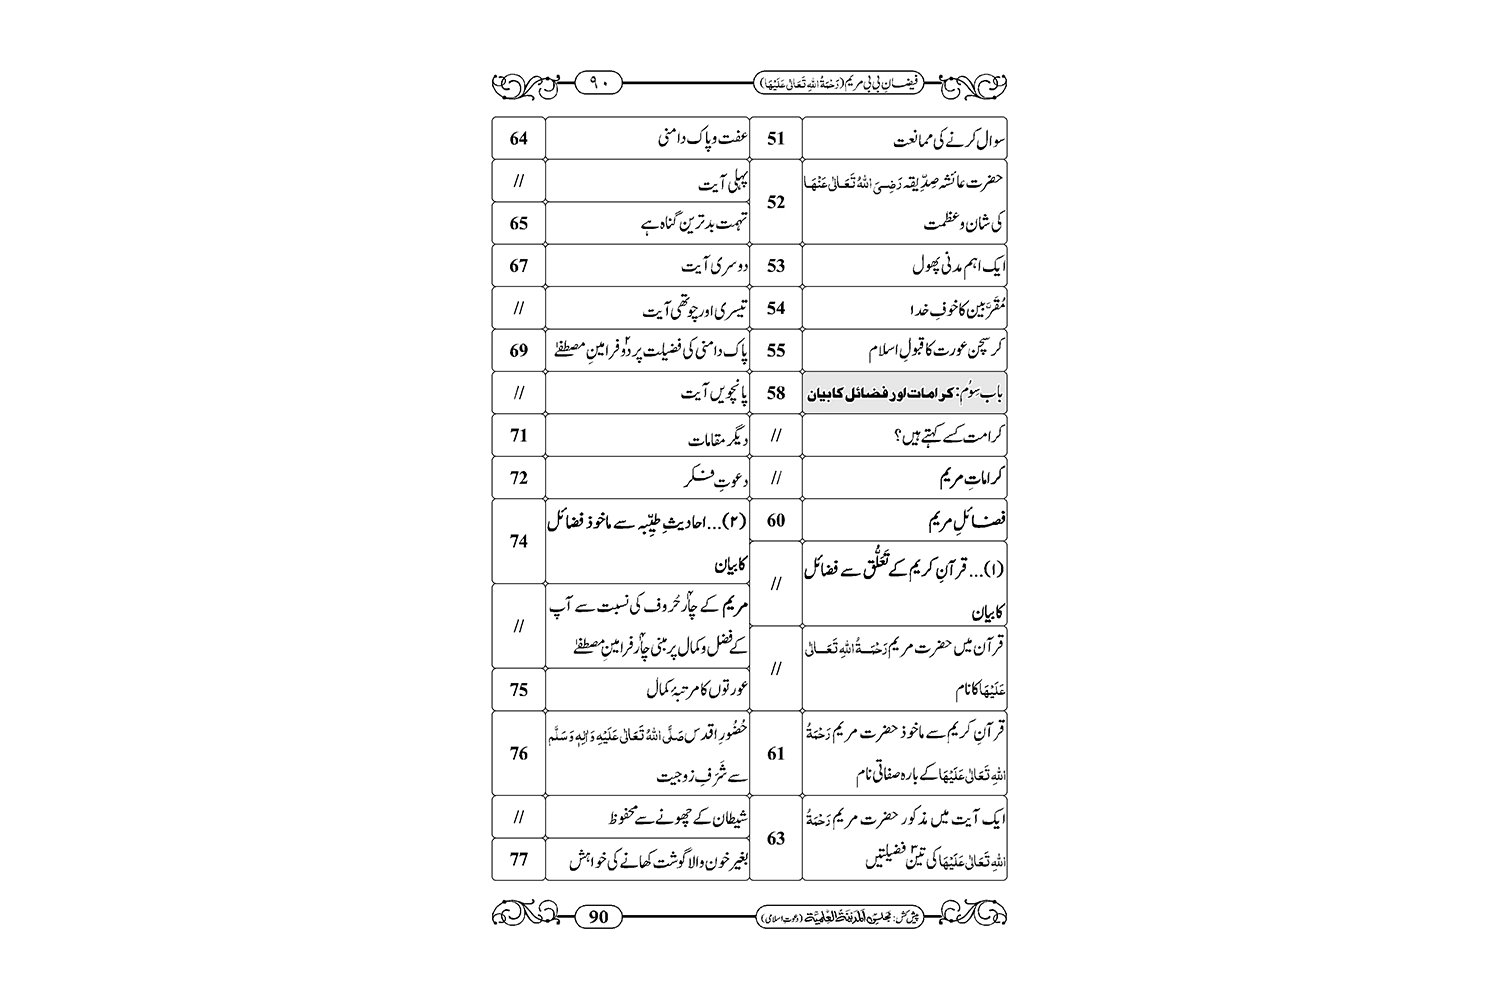 فیضانِ بی بی مریم (رَحْمَۃُ اللہِ تَعَالٰی عَلَیْہَا)
۹۰
سوال کرنے کی ممانعت
51
حضرت عائشہ صِدِّیقہ رَضِیَ اللہُ تَعَالٰی عَنْہَا
کی شان و عظمت
52
ایک اہم مدنی پھول
53
مُقَرَّبین کا خوفِ خدا
54
کرسچن عورت کا قبولِ اسلام
55
باب سِوُم: کرامات اور فضائل کا بیان
58
کرامت کسے کہتے ہیں؟
//
کراماتِ مریم
//
فضائلِ مریم
60
(۱)... قرآنِ کریم کے تَعَلُّق سے فضائل
کا بیان
//
قرآن میں حضرت مریم رَحْمَۃُ اللہِ تَعَالٰی
عَلَیْہَا کا نام
//
قرآنِ کریم سے ماخوذ حضرت مریم رَحْمَۃُ
اللہِ تَعَالٰی عَلَیْہَا کے بارہ صفاتی نام
61
ایک آیت میں مذکور حضرت مریم رَحْمَۃُ
اللہِ تَعَالٰی عَلَیْہَا کی تین۳ فضیلتیں
63
عفت و پاک دامنی
64
پہلی آیت
//
تہمت بدترین گناہ ہے
65
دوسری آیت
67
تیسری اور چوتھی آیت
//
پاک دامنی کی فضیلت پر دو۲ فرامینِ مصطفےٰ
69
پانچویں آیت
//
دیگر مقامات
71
دعوتِ فکر
72
(۲)... احادیثِ طیِّبہ سے ماخوذ فضائل
کا بیان
74
مریم کے چار۴ حُروف کی نسبت سے آپ
کے فضل و کمال پر مبنی چار۴ فرامینِ مصطفےٰ
//
عورتوں کا مرتبۂ کمال
75
حُضُورِ اقدس صَلَّی اللہُ تَعَالٰی عَلَیْہِ وَاٰلِہٖ وَسَلَّم
سے شَرَفِ زوجیت
76
شیطان کے چھونے سے محفوظ
//
بغیر خون والا گوشت کھانے کی خواہش
77
پیش کش: مجلس المدینۃ العلمیۃ (دعوتِ اسلامی)
90